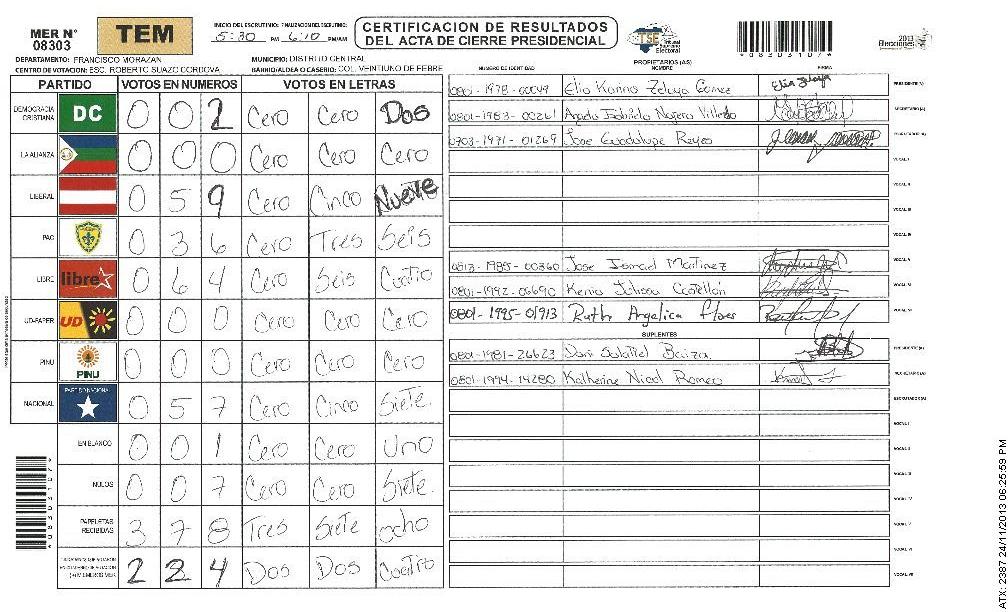 MER N° 08303
TEM
INICIO DEL ESCRUTINIO: FINALIZACION DEL ESCRUTINIO:
5:30 PM 6:10 PM/AM
CERTIFICACION DE RESULTADOS
DEL ACTA DE CIERRE PRESIDENCIAL
TSE Tribunal Supremo Electoral
*08303107*
2013
Elecciones
DEPARTAMENTO: FRANCISCO MORAZAN
MUNICIPIO: DISTRITO CENTRAL
CENTRO DE VOTACION: ESC. ROBERTO SUAZO CORDOVA
BARRIO/ALDEA O CASERIO: COL. VEINTIUNO DE FEBRE
PARTIDO VOTOS EN NUMEROS VOTOS EN LETRAS
DEMOCRACIA CRISTIANA DC 0 0 2 Cero Cero Dos
LA ALIANZA 0 0 0 Cero Cero Cero
LIBERAL 0 5 9 Cero Cinco Nueve
PAC 0 3 6 Cero Tres Seis
LIBRE libre 0 6 4 Cero Seis Cuatro
UD-FAPER UD 0 0 0 Cero Cero Cero
PINU PINU 0 0 0 Cero Cero Cero
NACIONAL PARTIDO NACIONAL 0 5 7 Cero Cinco Siete
EN BLANCO 0 0 1 Cero Cero Uno
NULOS 0 0 7 Cero Cero Siete
PAPELETAS RECIBIDAS 3 7 8 Tres Siete ocho
2 2 4 Dos Dos Cuatro
NUMERO DE IDENTIDAD
PROPIETARIOS (AS)
NOMBRE
FIRMA
0801-1978-00049 Elio Karina Zelaya Gomez PRESIDENTE(A)
0801-1983-00261 Najera SECRETARIO(A)
0703-1971-01269 Jose Guadalupe Reyes ESCRUTADOR(A)
VOCAL I
VOCAL II
VOCAL III
VOCAL IV
0813-1985-00360 Jose Ismael Martinez VOCAL V
0801-1992-06690 Kenia Julissa Castellon VOCAL VI
0801-1995-01913 Ruth Angelica Flores VOCAL VII
SUPLENTES
0801-1981-26623 PRESIDENTE(A)
0801-1994-14280 Katherine Nicol Romero SECRETARIO(A)
ESCRUTADOR(A)
VOCAL I
VOCAL II
VOCAL III
VOCAL IV
VOCAL V
VOCAL VI
VOCAL VII
*08303107*
ATX: 2387 24/11/2013 06:25:59 PM